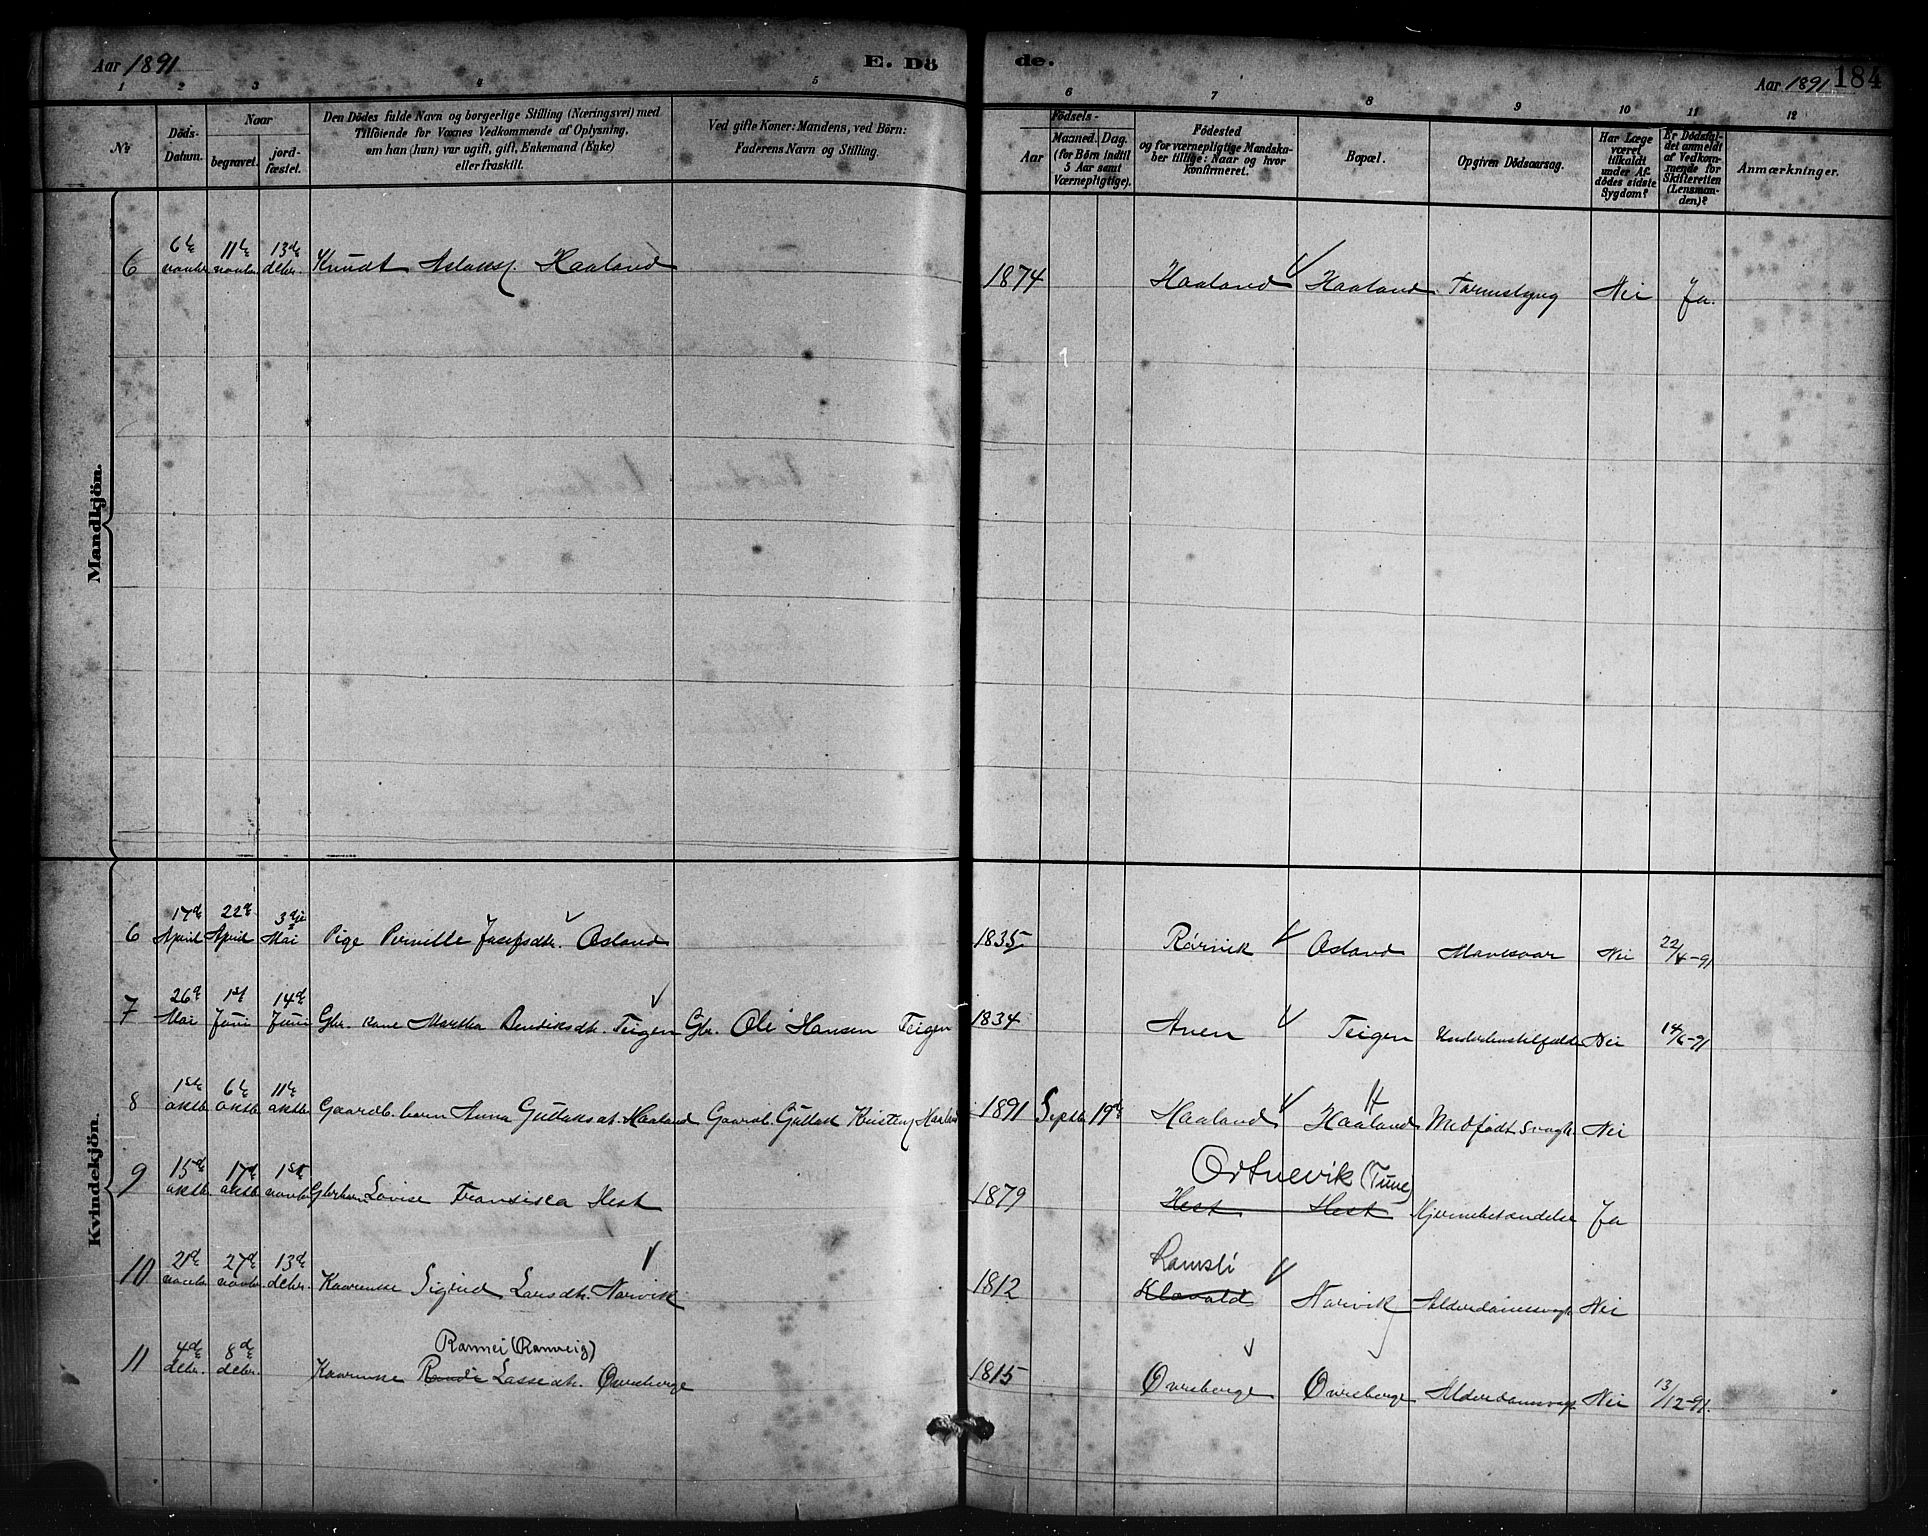 Aar 1891 E. Dö de. Aar 1891 184
1 2 3 4 5 6 7 8 9 10 11 12
No
Döds-Datum.
Naar
begravet.
jord-fæstet.
Den Dödes fulde Navn og borgerlige Stilling (Næringsvei) med
Tilföiende for Voxnes Vedkommende af Oplysning,
om han (hun) var ugift, gift, Enkemand (Enke)
eller fraskilt.
Ved gifte Koner: Mandens, ved Börn:
Faderens Navn og Stilling.
Födsels-
Aar
Maaned. Dag.
(for Börn indtil
5 Aar samt
Værnepligtige).
Födested
og for værnepligtige Mandska-
ber tillige: Naar og hvor
konfirmeret.
Bopæl.
Opgiven Dödsaarsag.
Har Læge
været
tilkaldt
under Af-
dödes sidste
Sygdom?
Er Dödsfal-
det anmeldt
af Vedkom-
mende for
Skifteretten
(Lensman-
den)?
Anmærkninger.
Mandkjön.
6 6te novbr 11te novbr 13de debr. Knudt Aslaks. Haaland 1874 Haaland Haaland Nei Ja.
Kvindekjön.
6 17de April 22de April 3die Mai Pige Pernille Josefsdtr. Osland 1835 Rörvik Osland Mavesaar Nei 22/4-91
7 26de Mai 1st Juni 14de Juni Gbr. kone Martha Bendiksdtr. Teigen Gbr. Ole Hansen Teigen 1834 Anen Teigen Nei 14/6-91
8 1ste oktb. 6te oktb. 11te oktb. Gaardb. barn Anna Gullaksdt. Haaland Gaardb. Gullak Haaland 1891 Septbr 19de Haaland Haaland Medfödt Svagh. Nei
Ortnevik (Tune)
9 15de oktb. 17de oktb. 1ste novbr Lovise Fransisca Hest 1879 Hest Hest Hjernebetændelse Ja
Ramsli
10 21de novbr. 27de novbr. 13de debr. Kaarenke Sigrid Larsdtr. Narvik 1812 Narvik Alderdomssvagh. Nei
Rannei (Ranveig)
11 4de debr. 8de debr. Kaarenke Randi Lassedtr. Övreberge 1815 Övreberge Övreberge Alderdomssvagh. Nei 13/12-91.